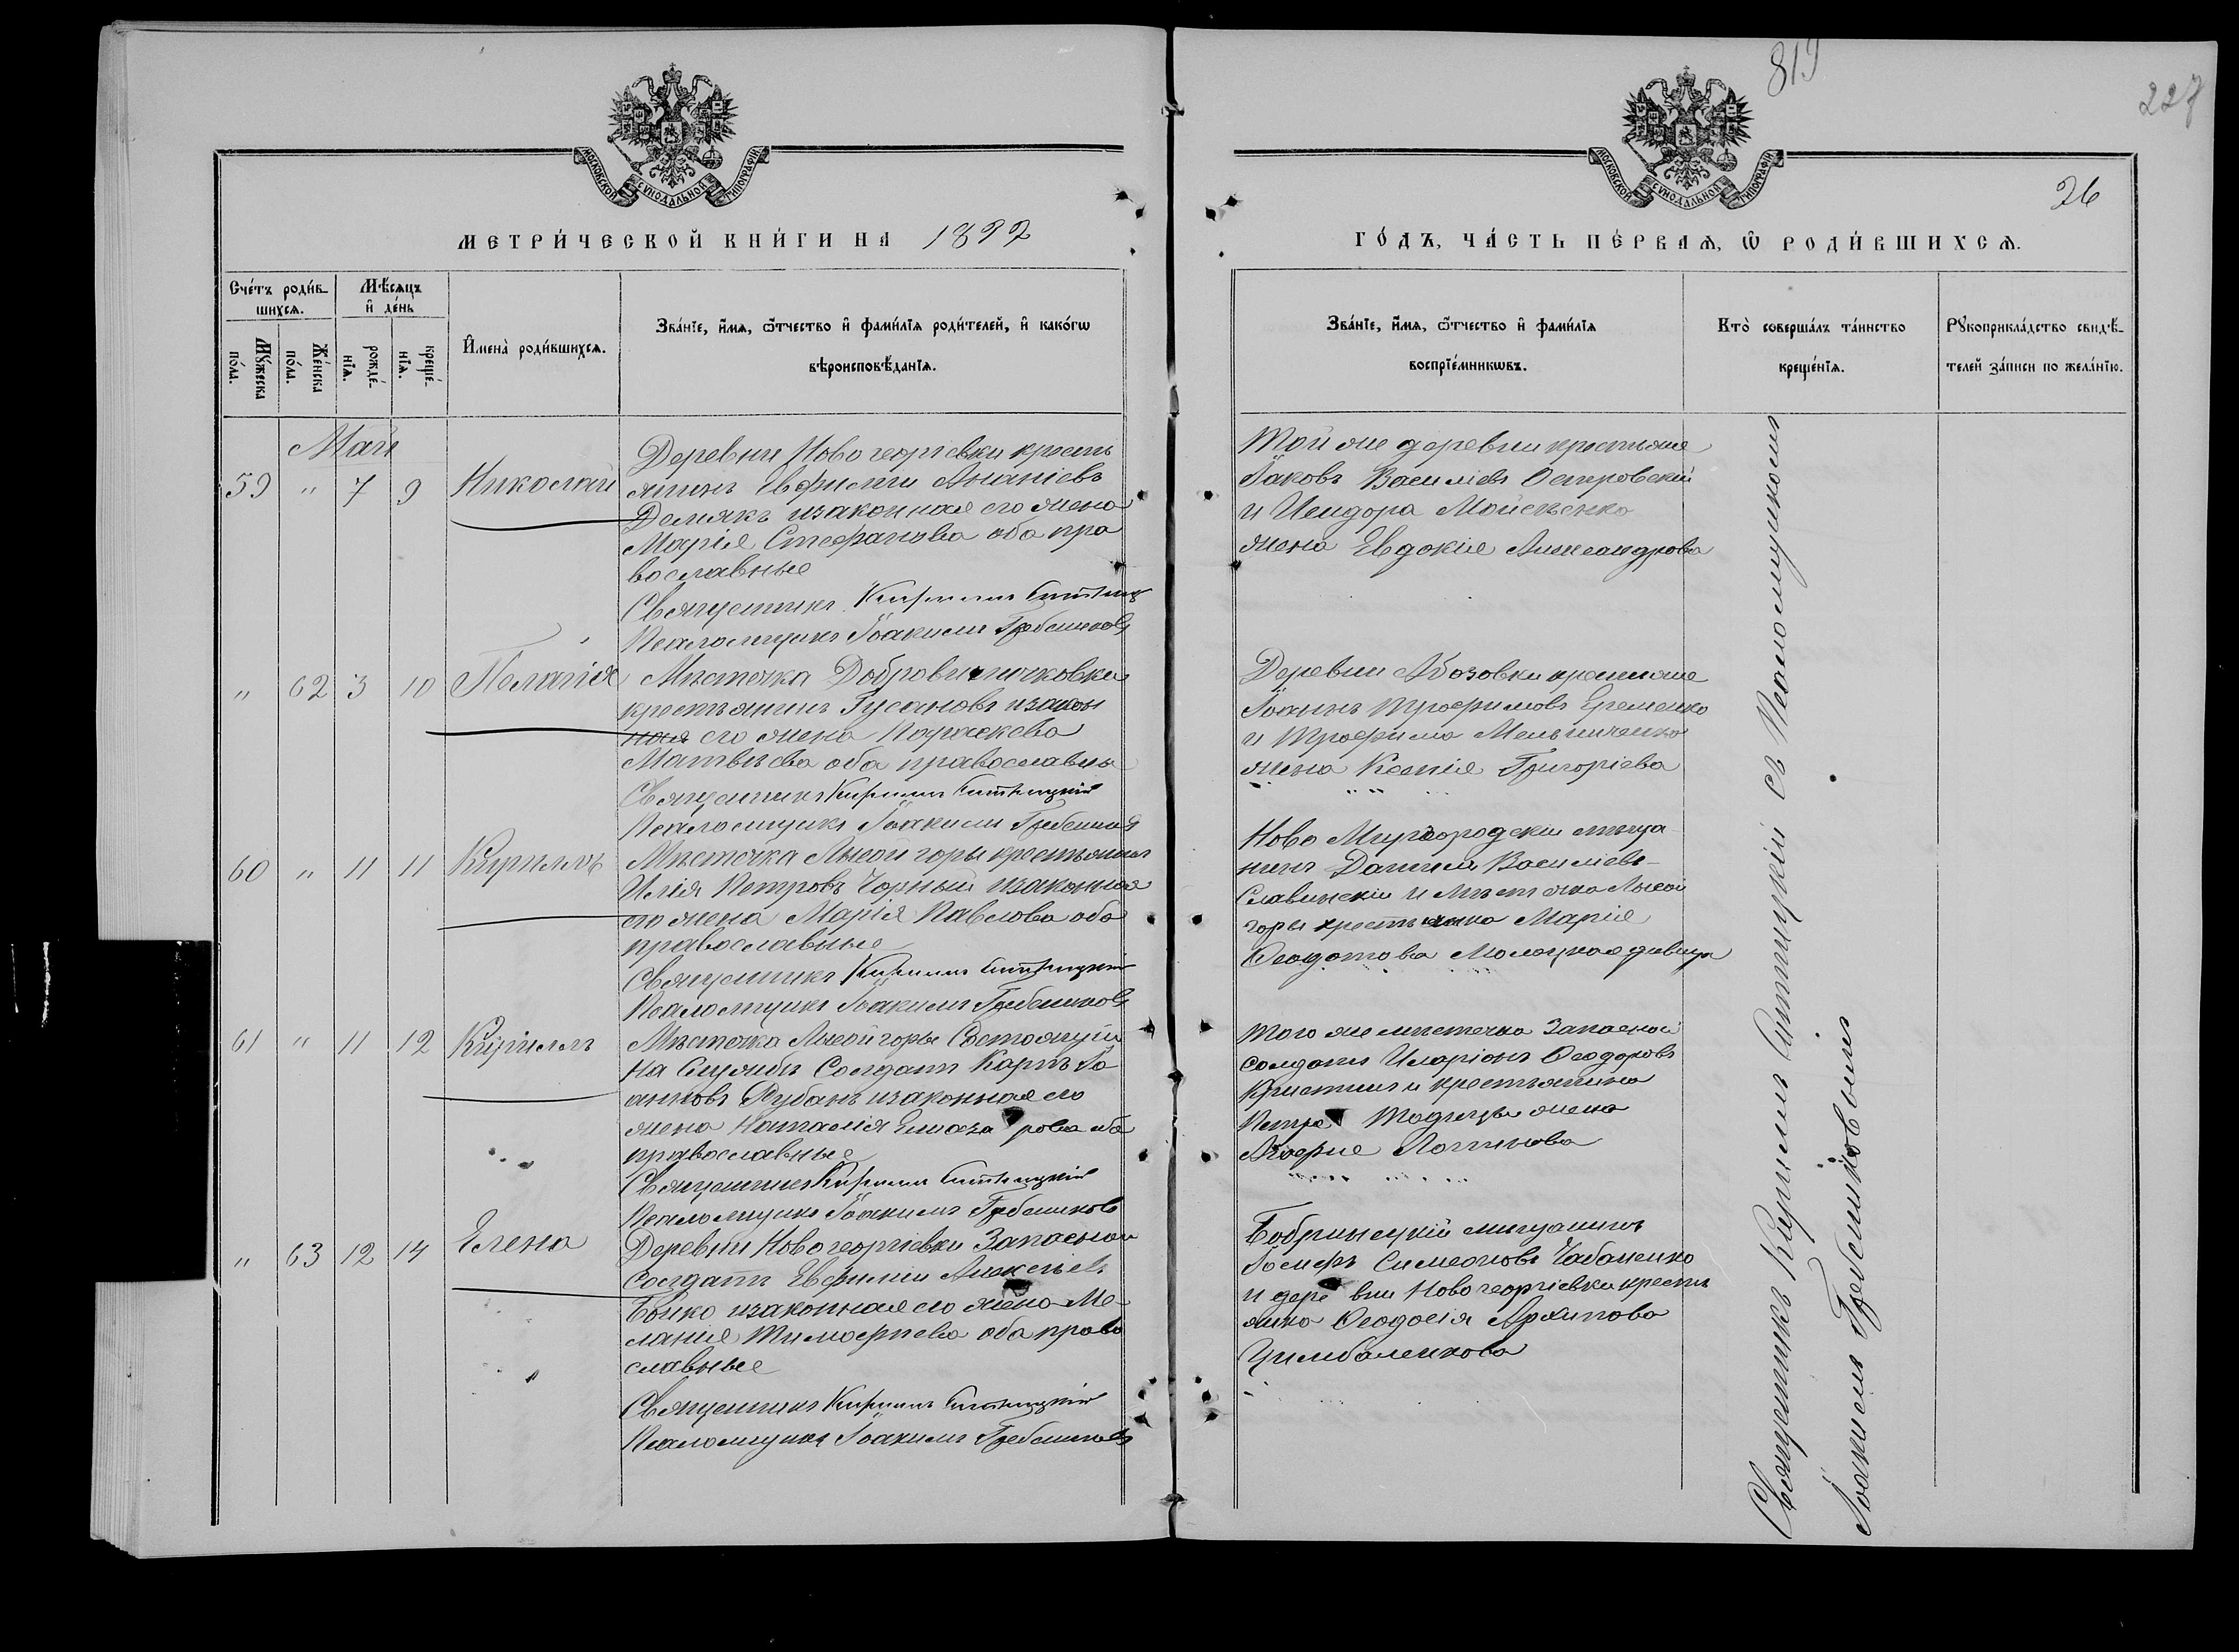 819
227
26
МОСКОВСКОЙ СѴНОДАЛЬНОЙ ТИПОГРАФІИ
МОСКОВСКОЙ СѴНОДАЛЬНОЙ ТИПОГРАФІИ
МЕТРИ́ЧЕСКОЙ КНИ́ГИ НА 1892
ГО́ДЪ, ЧА́СТЬ ПЕ́РВАѦ, Ѽ РОДИ́ВШИХСѦ.
Сче́тъ роди́в-
шихсѧ.
Мꙋ́жеска
по́ла.
Же́нска
по́ла.
Мѣ́сѧцъ
и҆ де́нь
рожде́-
нїѧ.
креще́-
нїѧ.
И҆мена̀ роди́вшихсѧ.
Зва́нїе, и҆́мѧ, ѻ҆́тчество и҆ фами́лїѧ роди́телей, и҆ како́гѡ
вѣроисповѣ́данїѧ.
Зва́нїе, и҆́мѧ, ѻ҆́тчество и҆ фами́лїѧ
воспрїе́мникѡвъ.
Кто̀ соверша́лъ та́инство
креще́нїѧ.
Рꙋкоприкла́дство свидѣ́-
телей за́писи по жела́нїю.
Май
59 " 7 9 Николай
Деревни Новогеоргіевки кресть
янинъ Евфимій Ананіевъ
Демякъ изаконная его жена
Марія Стефанова оба пра
вославные
Священникъ Кириллъ
Псаломщикъ Іоакимъ Гребенниковъ
Той же деревни крестьяне
Іаковъ Василіевъ Островскій
и Исидора Мойсеенко
жена Евдокія Александрова
" 62 3 10 Пелагія
Мѣстечка Добровеличковки
крестьянинъ Гусановъ изакон
ная его жена Параскева
Матвѣева оба православны
Священникъ Кириллъ
Псаломщикъ Іоакимъ Гребенниковъ
Деревни Абозовки крестьяне
Іоаннъ Трофимовъ Еременко
и Трофима Мельниченко
жена Ксенія Григоріева
60 " 11 11 Кириллъ
Мѣстечка Лысой горы крестьянинъ
Илія Петровъ Чорный изаконная
его жена Марія Павлова оба
православные
Священникъ Кириллъ
Псаломщикъ Іоакимъ Гребенниковъ
Ново Миргородскій мѣща-
нинъ Даніилъ Василіевъ
Славинскій и мѣстечка Лысой
горы крестьянка Марія
Ѳеодотова Молоцкая дѣвица
61 " 11 12 Кириллъ
Мѣстечка Лысой горы Состоящій
на Службѣ Солдатъ Карпъ Іо
анновъ Рубанъ изаконная его
жена Наталія Елиазарова оба
православные
Священникъ Кириллъ
Псаломщикъ Іоакимъ Гребенниковъ
Того же мѣстечка Запасной
солдатъ Иларіонъ Ѳеодоровъ
и крестьянина
Петра жена
Агафія Логинова
" 63 12 14 Елена
Деревни Новогеоргіевки Запасной
Солдатъ Евфимій Алексѣевъ
Бойко изаконная его жена Ме-
ланія Тимофіева оба право
славные
Священникъ Кириллъ
Псаломщикъ Іоакимъ Гребенниковъ
Бобринецкій мѣщанинъ
Іосифъ Симеоновъ Чабаненко
и деревни Новогеоргіевки кресть
янка Ѳеодосія Архипова
Цимбаленкова
Священникъ Кириллъ съ Псаломщикомъ
Іоакимъ Гребенниковымъ